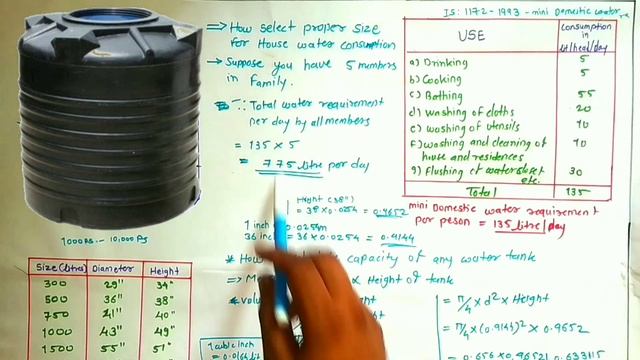 ⇒ How select proper size
for House water consumption
→ Suppose you have 5 numbers
in Family.
∵ Total water requirement
per day by all members
= 135 × 5
= 775 litre per day
IS: 1172-1993 - mini Domestic water
USE
Consumption
in
lt/head/day
a) Drinking 5
b) Cooking 5
c) Bathing 55
d) washing of cloths 20
e) washing of utensils 10
F) washing and cleaning of 10
house and residences
g) Flushing of water closet 30
etc.
Total 135
mini Domestic water requirement
per peson = 135 litre/day
Height (38")
= 38 × 0.0254 = 0.9652
1 inch 0.0254m
36 inch = 36 × 0.0254 = 0.9144
capacity of any water tank
× Height of tank
= π/4 × d² × Height
= π/4 × (0.9144)² × 0.9652
= 0.656 × 0.9652
1 cubic inch
1000 Rs - 10,000 Rs
Size (litres) Diameter Height
300 29" 34"
500 36" 38"
750 41" 40"
1000 43" 49"
1500 55" 51"